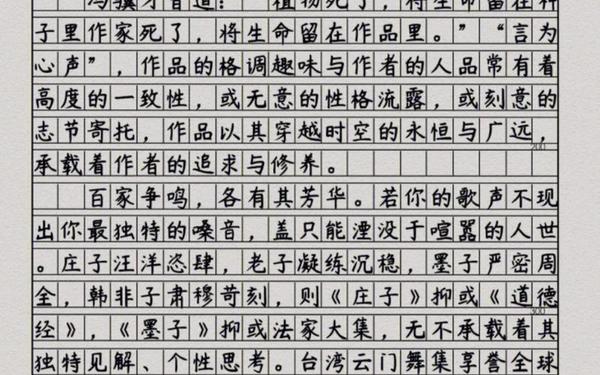 冯骥才曾道:“植物死了,将生命留在种
子里作家死了,将生命留在作品里。”“言为
心声”,作品的格调趣味与作者的人品常有着
高度的一致性,或无意的性格流露,或刻意的
志节寄托,作品以其穿越时空的永恒与广远,
200
承载着作者的追求与修养。
百家争鸣,各有其芳华。若你的歌声不现
出你最独特的嗓音,盖只能湮没于喧嚣的人世
。庄子汪洋恣肆,老子凝练沉稳,墨子严密周
全,韩非子肃穆苛刻,则《庄子》抑或《道德
300
经》,《墨子》抑或法家大集,无不承载着其
独特见解、个性思考。台湾云门舞集享誉全球